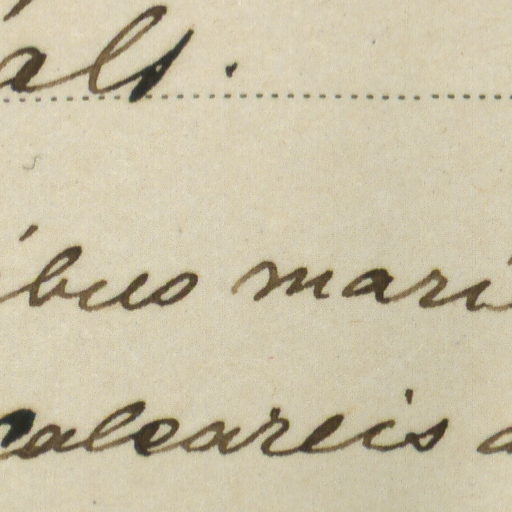 als.
ibus mari
calcareis a